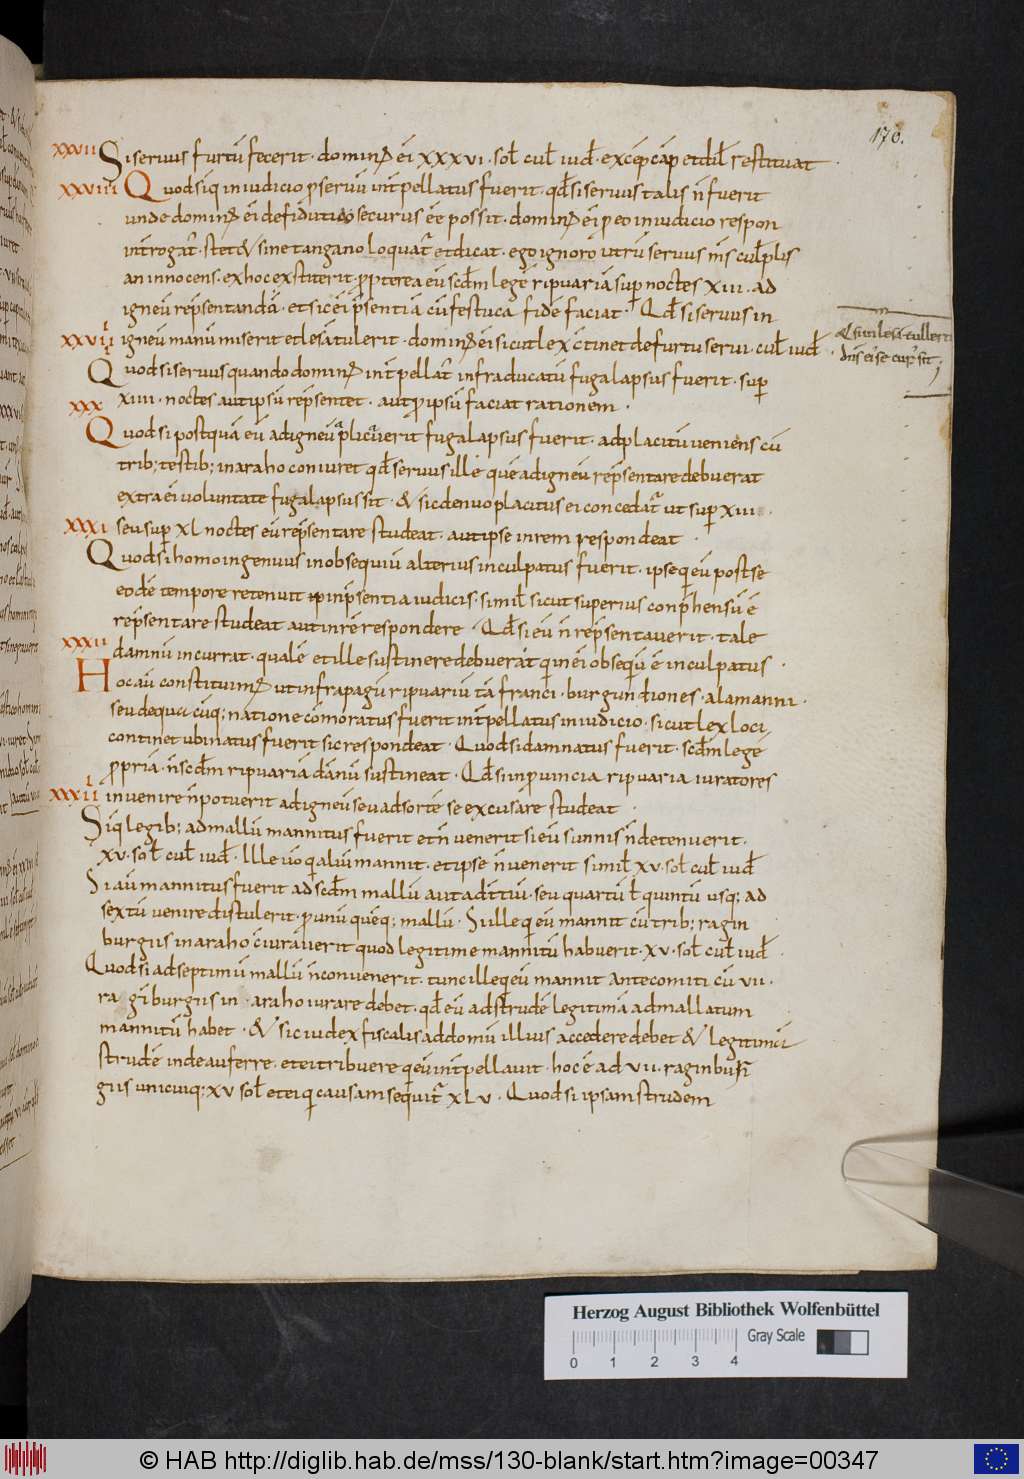 170.
xxvii Si seruus furtū fecerit · domin; ei xxxvi · sol cul iud · excep cap et dil restituat ·
xxviiii Quod siq in iudicio p seruū int̄pellatus fuerit · qd si seruus talis n̄ fuerit
unde domin; ei de fiducia securus ēē possit · domin; ei p eo in iudicio respon
int̄rogat · stet & sine tangano loquat et dicat · ego ignoro utrū seruus m̄s culplis
an innocens · ex hoc extiterit propterea eū scdm legē ripuariā sup noctes xiiii · ad
igneū rep̄sentandū · et sic ei p̄sentiā cū festuca fide faciat · Qd si seruus in
xxviiii igneū manū miserit et lesā tulerit · domin; ei sicut lex c̄tinet de furtu serui · cul iud ·
Quod si seruus quando domin; int̄pellat infra ducatū fuga lapsus fuerit · sup
xiiii · noctes aut ipsū rep̄sentet · aut p ipsū faciat rationem ·
xxx
Quod si postquā eū ad igneū aplicauerit fuga lapsus fuerit · ad placitū veniens cū
trib; testib; in araho coniuret qd seruus ille quē ad igneū rep̄sentare debuerat
extra ei voluntate fuga lapsus sit · & sic denuo placitus ei concedat ut sup xiiii
xxxi seu sup xl noctes eū rep̄sentare studeat · aut ipse in rem respondeat ·
Quod si homo ingenuus in obsequiū alterius inculpatus fuerit · ipse q eū post se
eodē tempore retenuit in p̄sentia iudicis · simil sicut superius conp̄hensū ē
rep̄sentare studeat aut in rē respondere · Qd si eū n̄ rep̄sentauerit · tale
xxxii damnū incurrat · qualē et ille sustinere debuerat q in ei obsequiū ē inculpatus ·
Hoc aū constituim; ut infra pagū ripuariū tā franci · burgundiones · alamanni ·
seu de quacūq; natione cōmoratus fuerit int̄pellatus in iudicio · sicut lex loci
continet ubi natus fuerit sic respondeat · Quod si damnatus fuerit · scdm legē
propriā · n̄ scdm ripuariā dānū sustineat · Qd si in prouincia ripuaria iuratores
xxxiii inuenire n̄ potuerit ad igneū seu ad sortē se excusare studeat ·
Siq legib; ad mallū mannitus fuerit et n̄ venerit si eū sunnis n̄ detenuerit ·
xv · sol cul iud · Ille uō q aliū mannit · et ipse n̄ venerit simil xv · sol cul iud
Si aū mannitus fuerit ad scdm mallū aut ad tertiū · seu quartū l quintū usq; ad
sextū venire distulerit · pro unū quēq; mallū · Si ille q eū mannit cū trib; ragin
burgiis in araho c̄iurauerit quod legitime mannitū habuerit · xv · sol cul iud ·
Quod si ad septimū mallū n̄ conuenerit · tunc ille q eū mannit ante comiti cū vii ·
ra gīburgiis in · araho iurare debet · qd eū ad strudē legitimā admallatum
mannitū habet · & sic iudex fiscalis ad domū illius accedere debet & legitimā
strudē inde auferre · et ei tribuere q eū int̄pellauit · hoc ē ad vii · raginbur
giis unicuiq; xv sol et ei q causam sequit xlv · Quod si ipsam strudem
Herzog August Bibliothek Wolfenbüttel
Gray Scale
0 1 2 3 4
© HAB http://diglib.hab.de/mss/130-blank/start.htm?image=00347